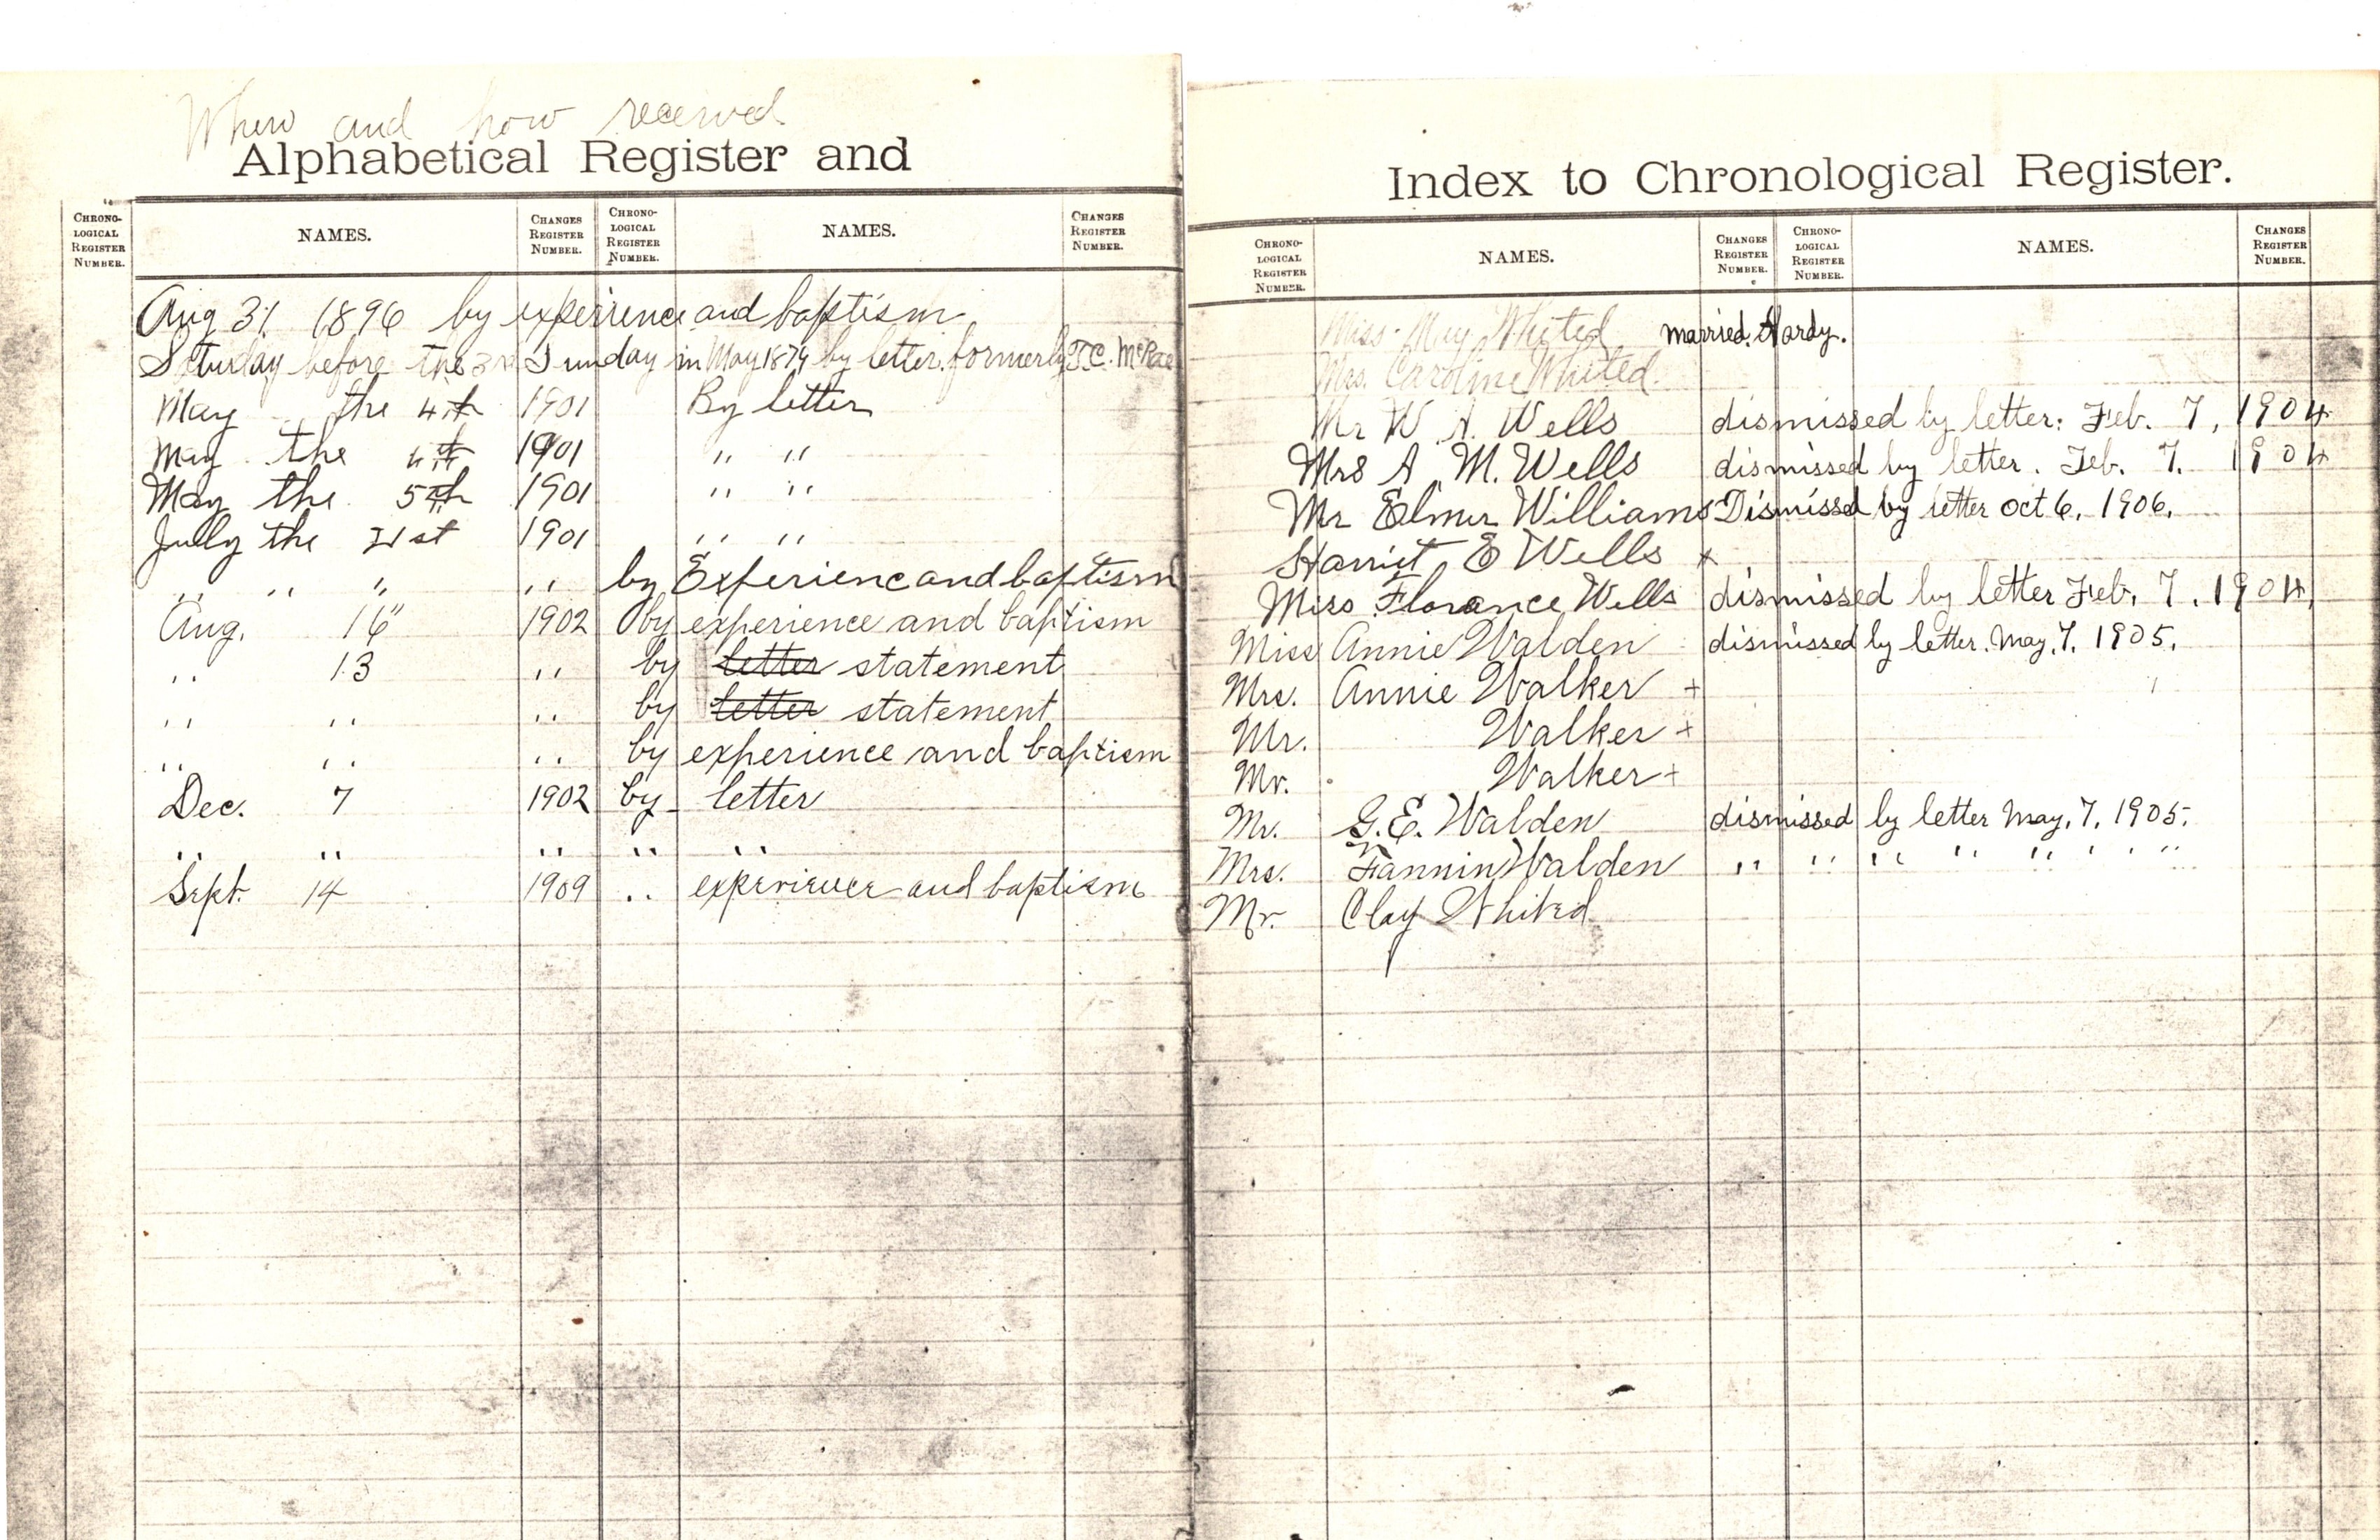 When and how received
Alphabetical Register and
CHRONO-LOGICAL REGISTER NUMBER.
NAMES.
CHANGES REGISTER NUMBER.
CHRONO-LOGICAL REGISTER NUMBER.
NAMES.
CHANGES REGISTER NUMBER.
Aug 31 1896 by experience and baptism
Saturday before the 3rd Sunday in May 1874 by letter. formerly T.C. McRae
May the 4th 1901 By letter
May the 4th 1901 " "
May the 5th 1901 " "
Jully the 21st 1901 " "
" " " " by Experience and baptism
Aug. 16" 1902 by experience and baptism
" 13 " by letter statement
" " " by letter statement
" " " by experience and baptism
Dec. 7 1902 by letter
" " " " "
Sept. 14 1909 " experience and baptism
Index to Chronological Register.
CHRONO-LOGICAL REGISTER NUMBER.
NAMES.
CHANGES REGISTER NUMBER.
CHRONO-LOGICAL REGISTER NUMBER.
NAMES.
CHANGES REGISTER NUMBER.
Miss May Whited married Hardy.
Mrs. Caroline Whited.
Mr W A. Wells dismissed by letter: Feb. 7, 1904
Mrs A. M. Wells dismissed by letter. Feb. 7. 1904
Mr Elmer Williams Dismissed by letter Oct 6, 1906.
Harriet E Wells x
Miss Florance Wells dismissed by letter Feb. 7. 1904
Miss Annie Walden dismissed by letter. May. 7. 1905.
Mrs. Annie Walker +
Mr. Walker +
Mr. Walker +
Mr. G.E. Walden dismissed by letter May. 7. 1905.
Mrs. Fannin Walden " " " " " " " "
Mr. Clay Whited